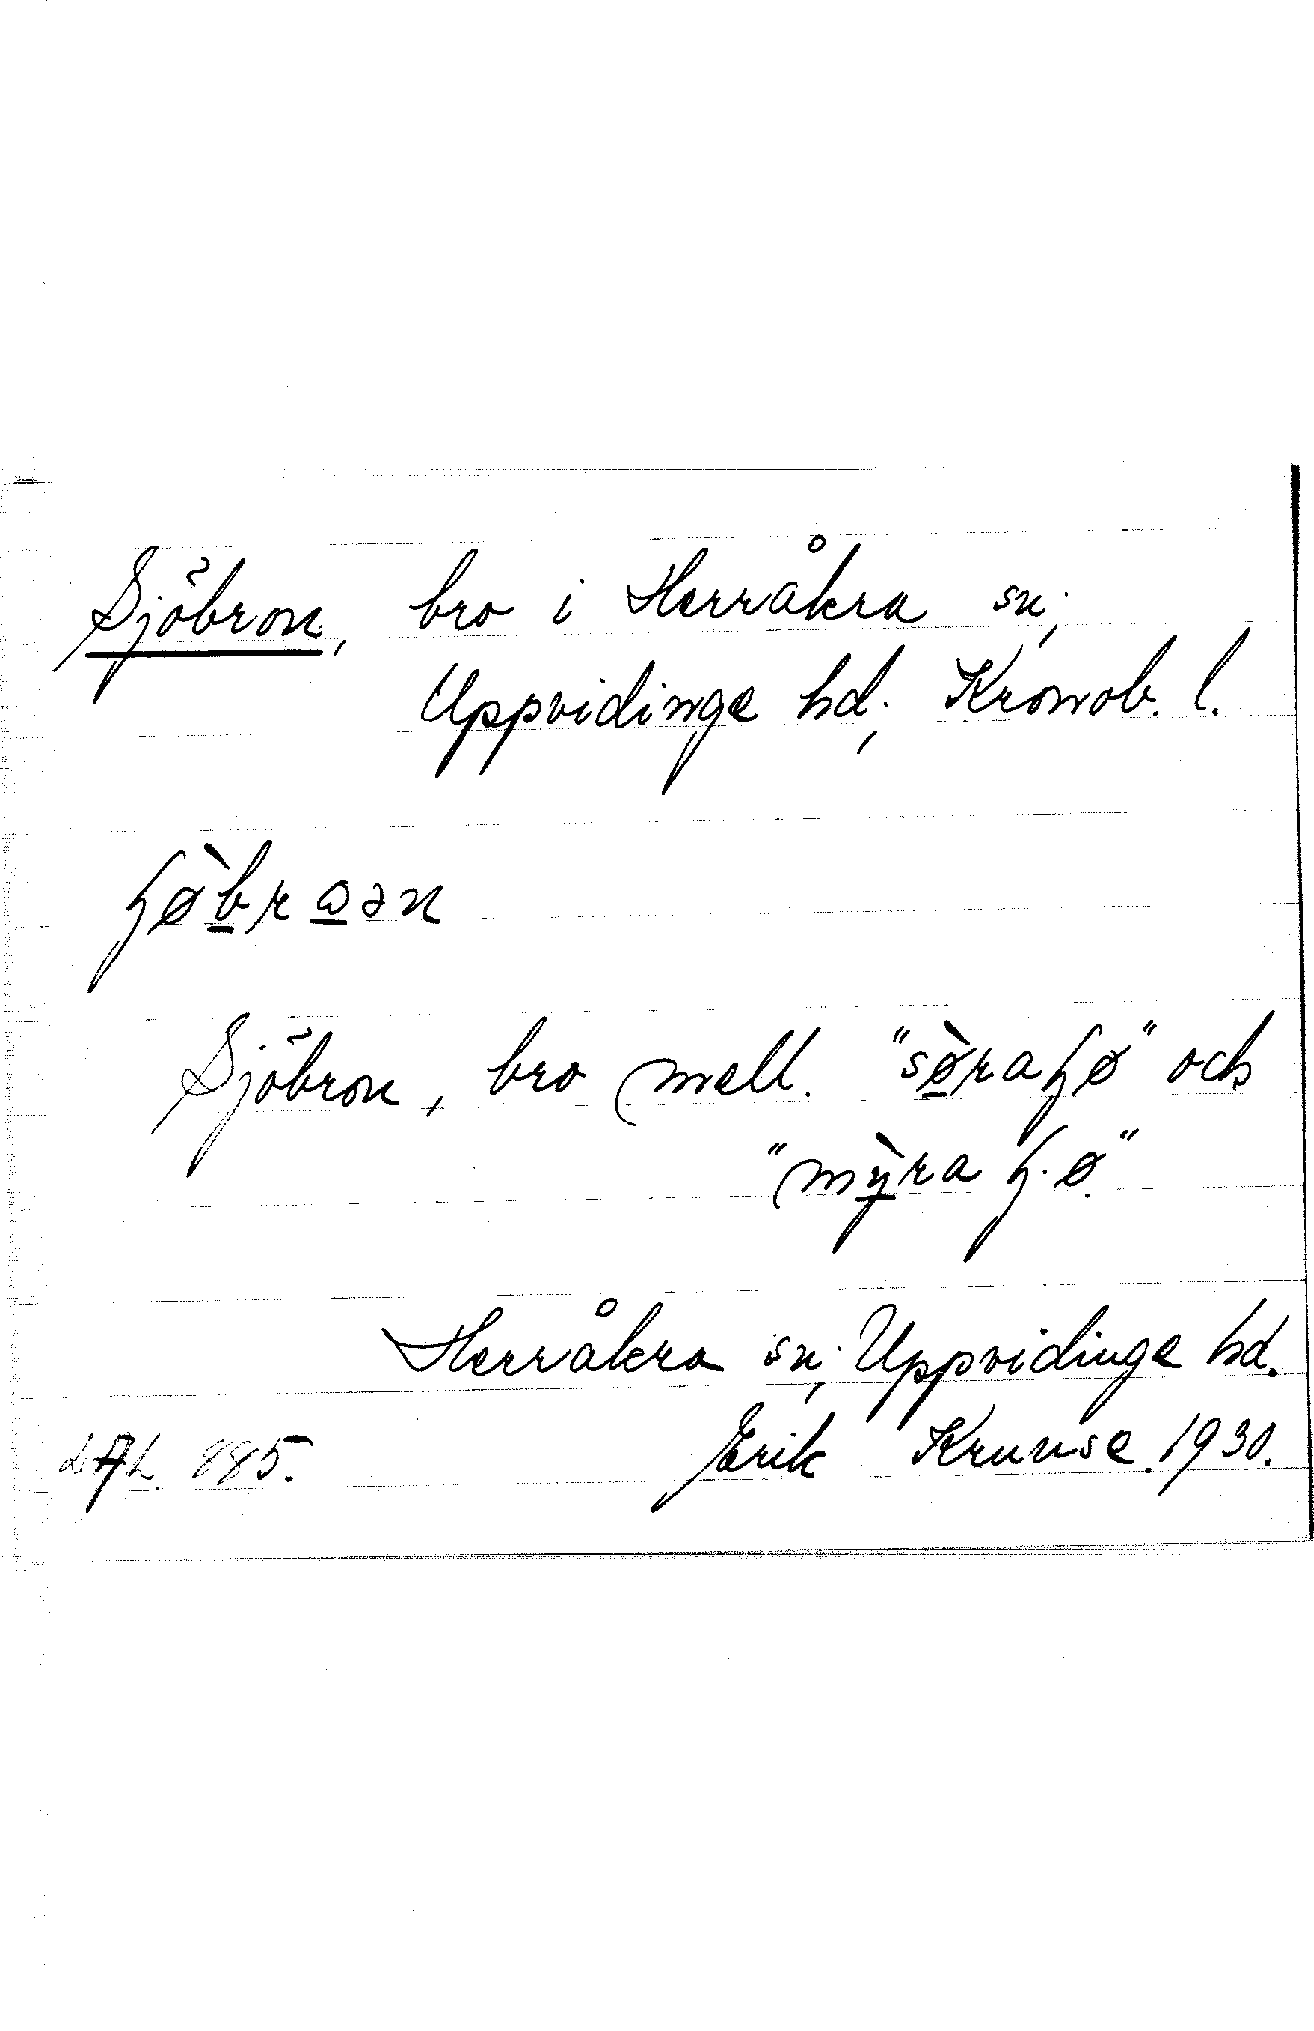 Sjöbron, bro i Herråkra sn;
Uppvidinge hd; Kronob. l.
ɧø̀brωən
Sjöbron, bro mell. "sø̀raɧø" och
"mỳra ɧ.ø"
Herråkra sn; Uppvidinge hd.
LAL. 885. Erik Kruuse. 1930.